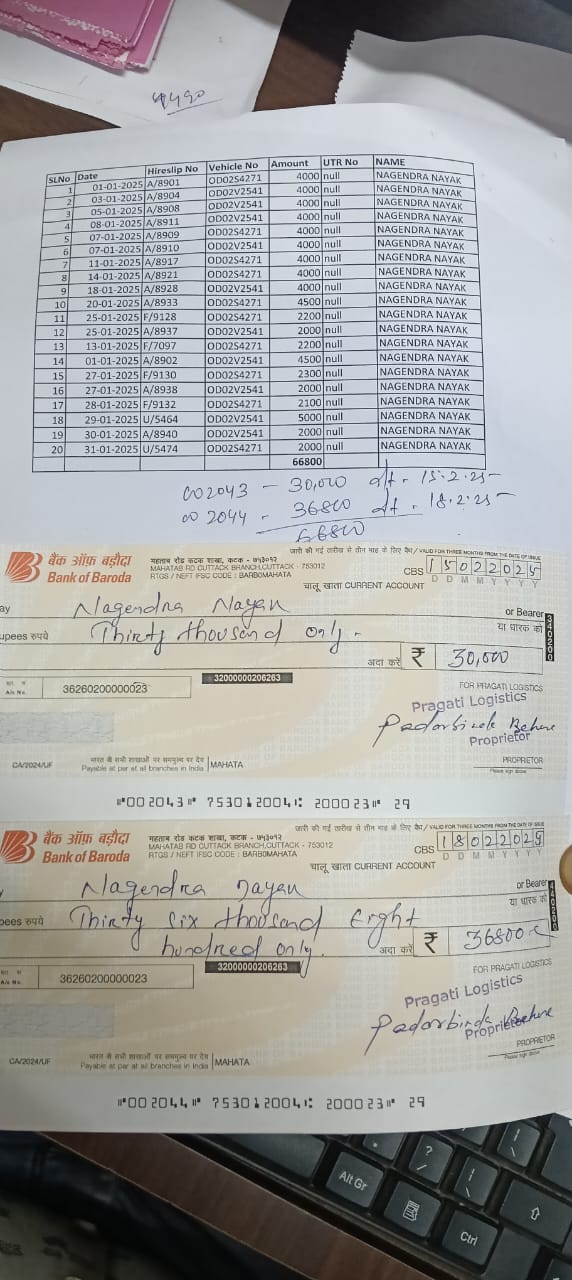 4490
SLNo Date Hireslip No Vehicle No Amount UTR No NAME
1 01-01-2025 A/8901 OD02S4271 4000 null NAGENDRA NAYAK
2 03-01-2025 A/8904 OD02V2541 4000 null NAGENDRA NAYAK
3 05-01-2025 A/8908 OD02S4271 4000 null NAGENDRA NAYAK
4 08-01-2025 A/8911 OD02V2541 4000 null NAGENDRA NAYAK
5 07-01-2025 A/8909 OD02S4271 4000 null NAGENDRA NAYAK
6 07-01-2025 A/8910 OD02V2541 4000 null NAGENDRA NAYAK
7 11-01-2025 A/8917 OD02S4271 4000 null NAGENDRA NAYAK
8 14-01-2025 A/8921 OD02S4271 4000 null NAGENDRA NAYAK
9 18-01-2025 A/8928 OD02V2541 4000 null NAGENDRA NAYAK
10 20-01-2025 A/8933 OD02S4271 4500 null NAGENDRA NAYAK
11 25-01-2025 F/9128 OD02S4271 2200 null NAGENDRA NAYAK
12 25-01-2025 A/8937 OD02V2541 2000 null NAGENDRA NAYAK
13 13-01-2025 F/7097 OD02S4271 2200 null NAGENDRA NAYAK
14 01-01-2025 A/8902 OD02V2541 4500 null NAGENDRA NAYAK
15 27-01-2025 F/9130 OD02S4271 2300 null NAGENDRA NAYAK
16 27-01-2025 A/8938 OD02V2541 2000 null NAGENDRA NAYAK
17 28-01-2025 F/9132 OD02S4271 2100 null NAGENDRA NAYAK
18 29-01-2025 U/5464 OD02V2541 5000 null NAGENDRA NAYAK
19 30-01-2025 A/8940 OD02V2541 2000 null NAGENDRA NAYAK
20 31-01-2025 U/5474 OD02S4271 2000 null NAGENDRA NAYAK
66800
002043 - 30,000 dt - 15.2.25
002044 - 36800 dt - 18.2.25
66800
जारी की गई तारीख से तीन माह के लिए वैध / VALID FOR THREE MONTHS FROM THE DATE OF ISSUE
बैंक ऑफ़ बड़ौदा महताब रोड कटक शाखा, कटक - ७५३०१२
Bank of Baroda MAHATAB RD CUTTACK BRANCH,CUTTACK - 753012 CBS 15022025
RTGS / NEFT IFSC CODE : BARB0MAHATA D D M M Y Y Y Y
चालू खाता CURRENT ACCOUNT
ay Nagendra Nayak or Bearer
या धारक को
upees रुपये Thirty thousand only -
अदा करें ₹ 30,000
340200
32000000206263
A/c No. 36260200000023 FOR PRAGATI LOGISTICS
Pragati Logistics
Proprietor
PROPRIETOR
Please sign above
CA/2024/UF भारत में सभी शाखाओं पर सममूल्य पर देय
Payable at par at all branches in India MAHATA
⑈002043⑈ 753012004⑆ 200023⑈ 29
जारी की गई तारीख से तीन माह के लिए वैध / VALID FOR THREE MONTHS FROM THE DATE OF ISSUE
बैंक ऑफ़ बड़ौदा महताब रोड कटक शाखा, कटक - ७५३०१२
Bank of Baroda MAHATAB RD CUTTACK BRANCH,CUTTACK - 753012 CBS 18022025
RTGS / NEFT IFSC CODE : BARB0MAHATA D D M M Y Y Y Y
चालू खाता CURRENT ACCOUNT
Nagendra nayak or Bearer
या धारक को
pees रुपये Thirty six thousand Eight
hundred only. अदा करें ₹ 36800
32000000206263
A/c No. 36260200000023 FOR PRAGATI LOGISTICS
Pragati Logistics
Proprietor
PROPRIETOR
Please sign above
CA/2024/UF भारत में सभी शाखाओं पर सममूल्य पर देय
Payable at par at all branches in India MAHATA
⑈002044⑈ 753012004⑆ 200023⑈ 29
Alt Gr
?
/
Ctrl